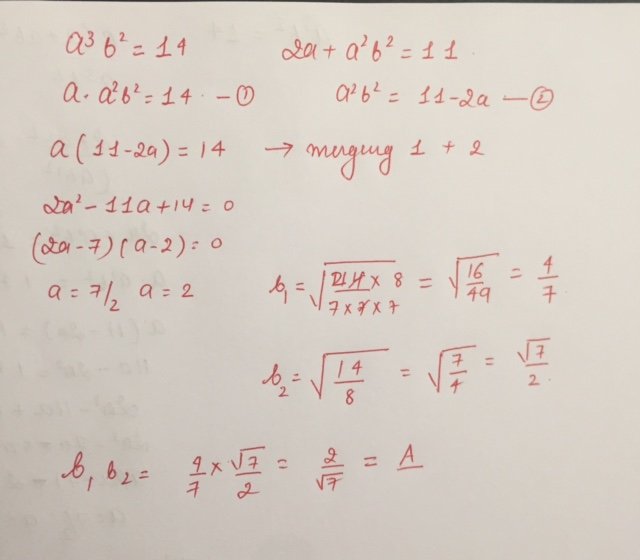 a³ b² = 14    2a + a²b² = 11
a . a²b² = 14 - ①    a²b² = 11 - 2a — ②
a (11 - 2a) = 14 → merging 1 + 2
2a² - 11a + 14 = 0
(2a - 7) (a - 2) = 0
a = 7/2  a = 2    b₁ = √(14 × 8 / 7 × 7 × 7) = √(16/49) = 4/7
b₂ = √(14/8) = √(7/4) = √7/2
b₁ b₂ = 4/7 × √7/2 = 2/√7 = A